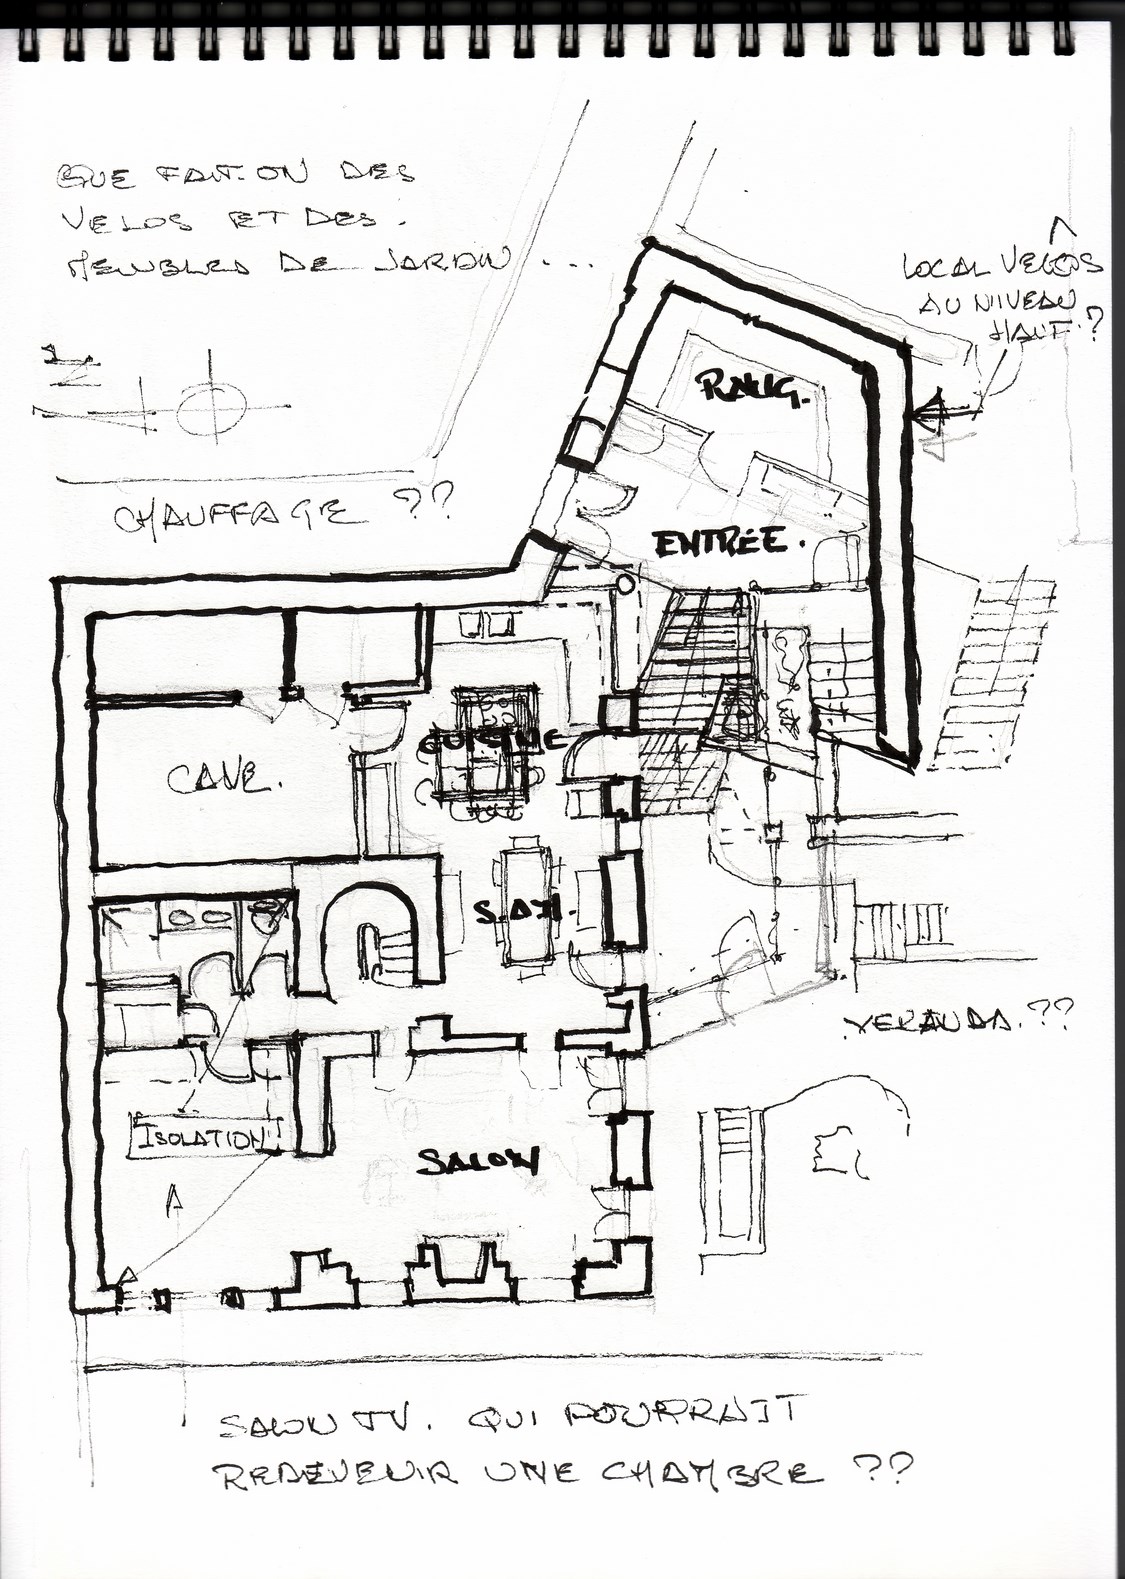 QUE FAIT-ON DES
VELOS ET DES
MEUBLES DE JARDIN ...
LOCAL VELOS
AU NIVEAU
HAUT ?
N
RANG.
CHAUFFAGE ??
ENTRÉE.
CUISINE
CAVE.
S.A.M.
VERANDA. ??
ISOLATION
SALON
A
SALON TV. QUI POURRAIT
REDEVENIR UNE CHAMBRE ??